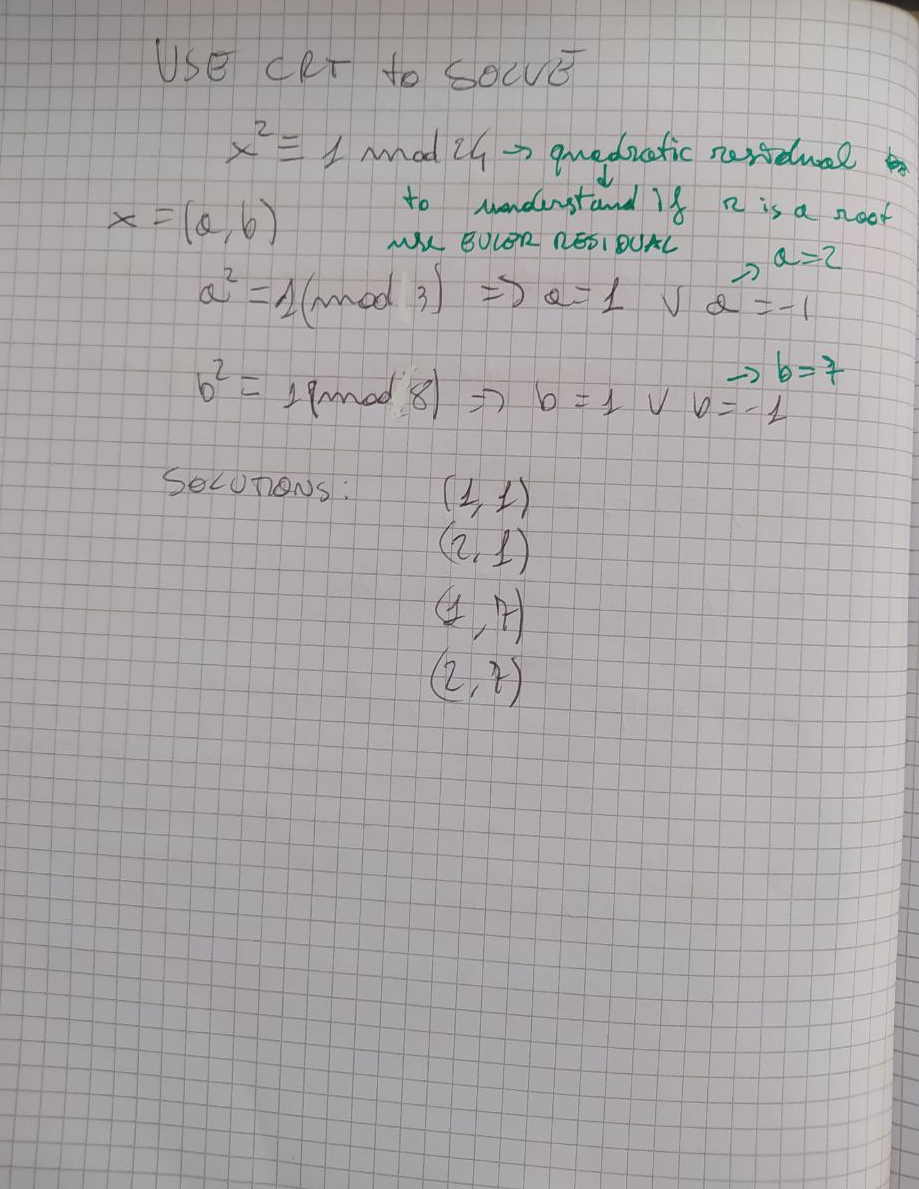 USE CRT to SOLVE
x² ≡ 1 mod 24 → quadratic residual
↓
x = (a,b) to understand if r is a root
use EULER RESIDUAL
→ a=2
a² = 1(mod 3) => a = 1 ∨ a = -1
→ b=7
b² = 1(mod 8) => b = 1 ∨ b = -1
SOLUTIONS: (1,1)
(2,1)
(1,7)
(2,7)